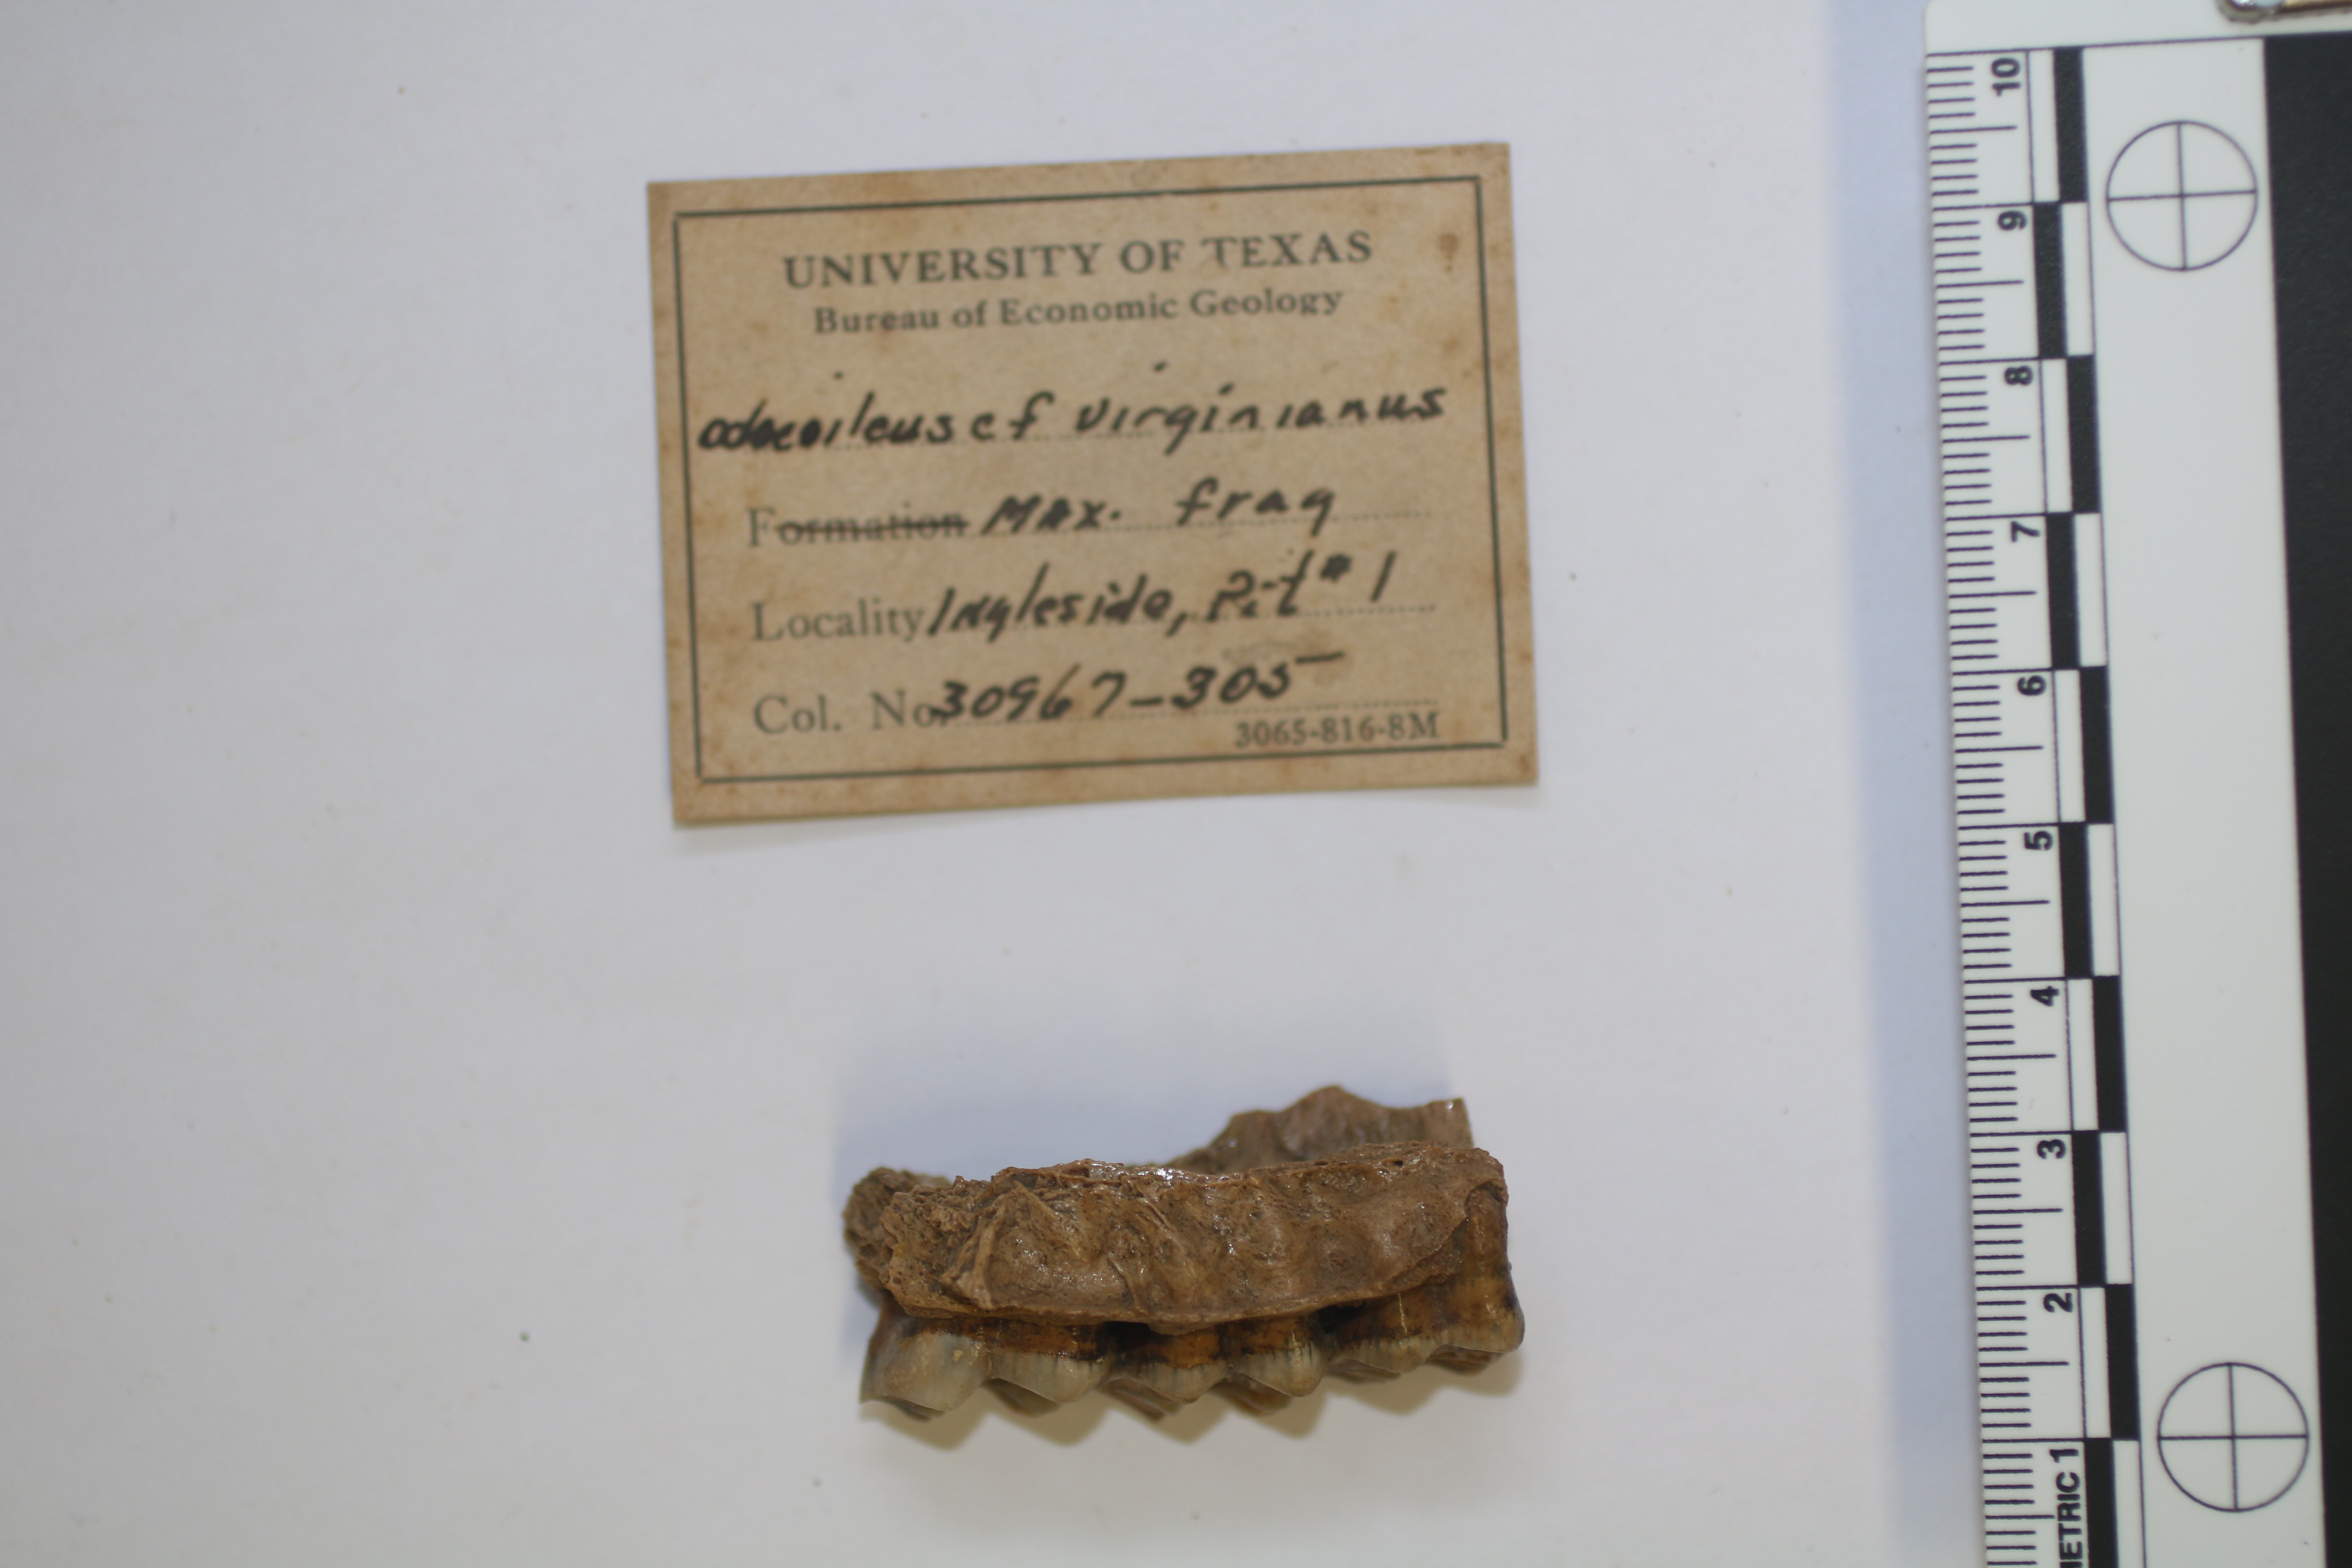 UNIVERSITY OF TEXAS
Bureau of Economic Geology
odocoileus cf virginianus
Formation Max. frag
Locality Ingleside, Pit # 1
Col. No. 30967-305
3065-816-8M
10
9
8
7
6
5
4
3
2
METRIC 1